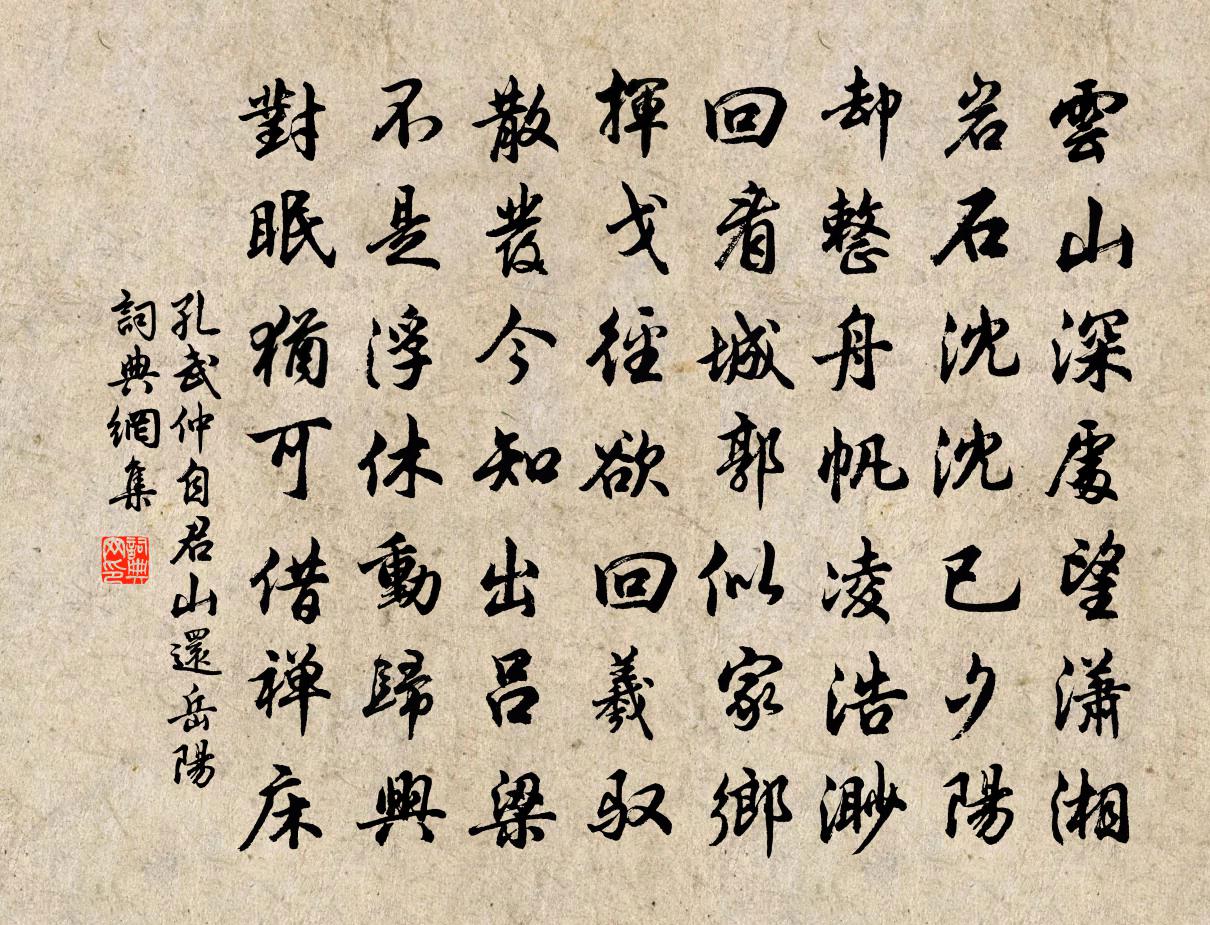 雲山深處望潇湘
岩石沈沈已夕陽
却整舟帆凌浩渺
回看城郭似家鄉
揮戈徑欲回羲馭
散發今知出呂梁
不是浮休動歸興
對眠猶可借禅床
孔武仲自君山還岳陽
詞典網集
詞典
网印